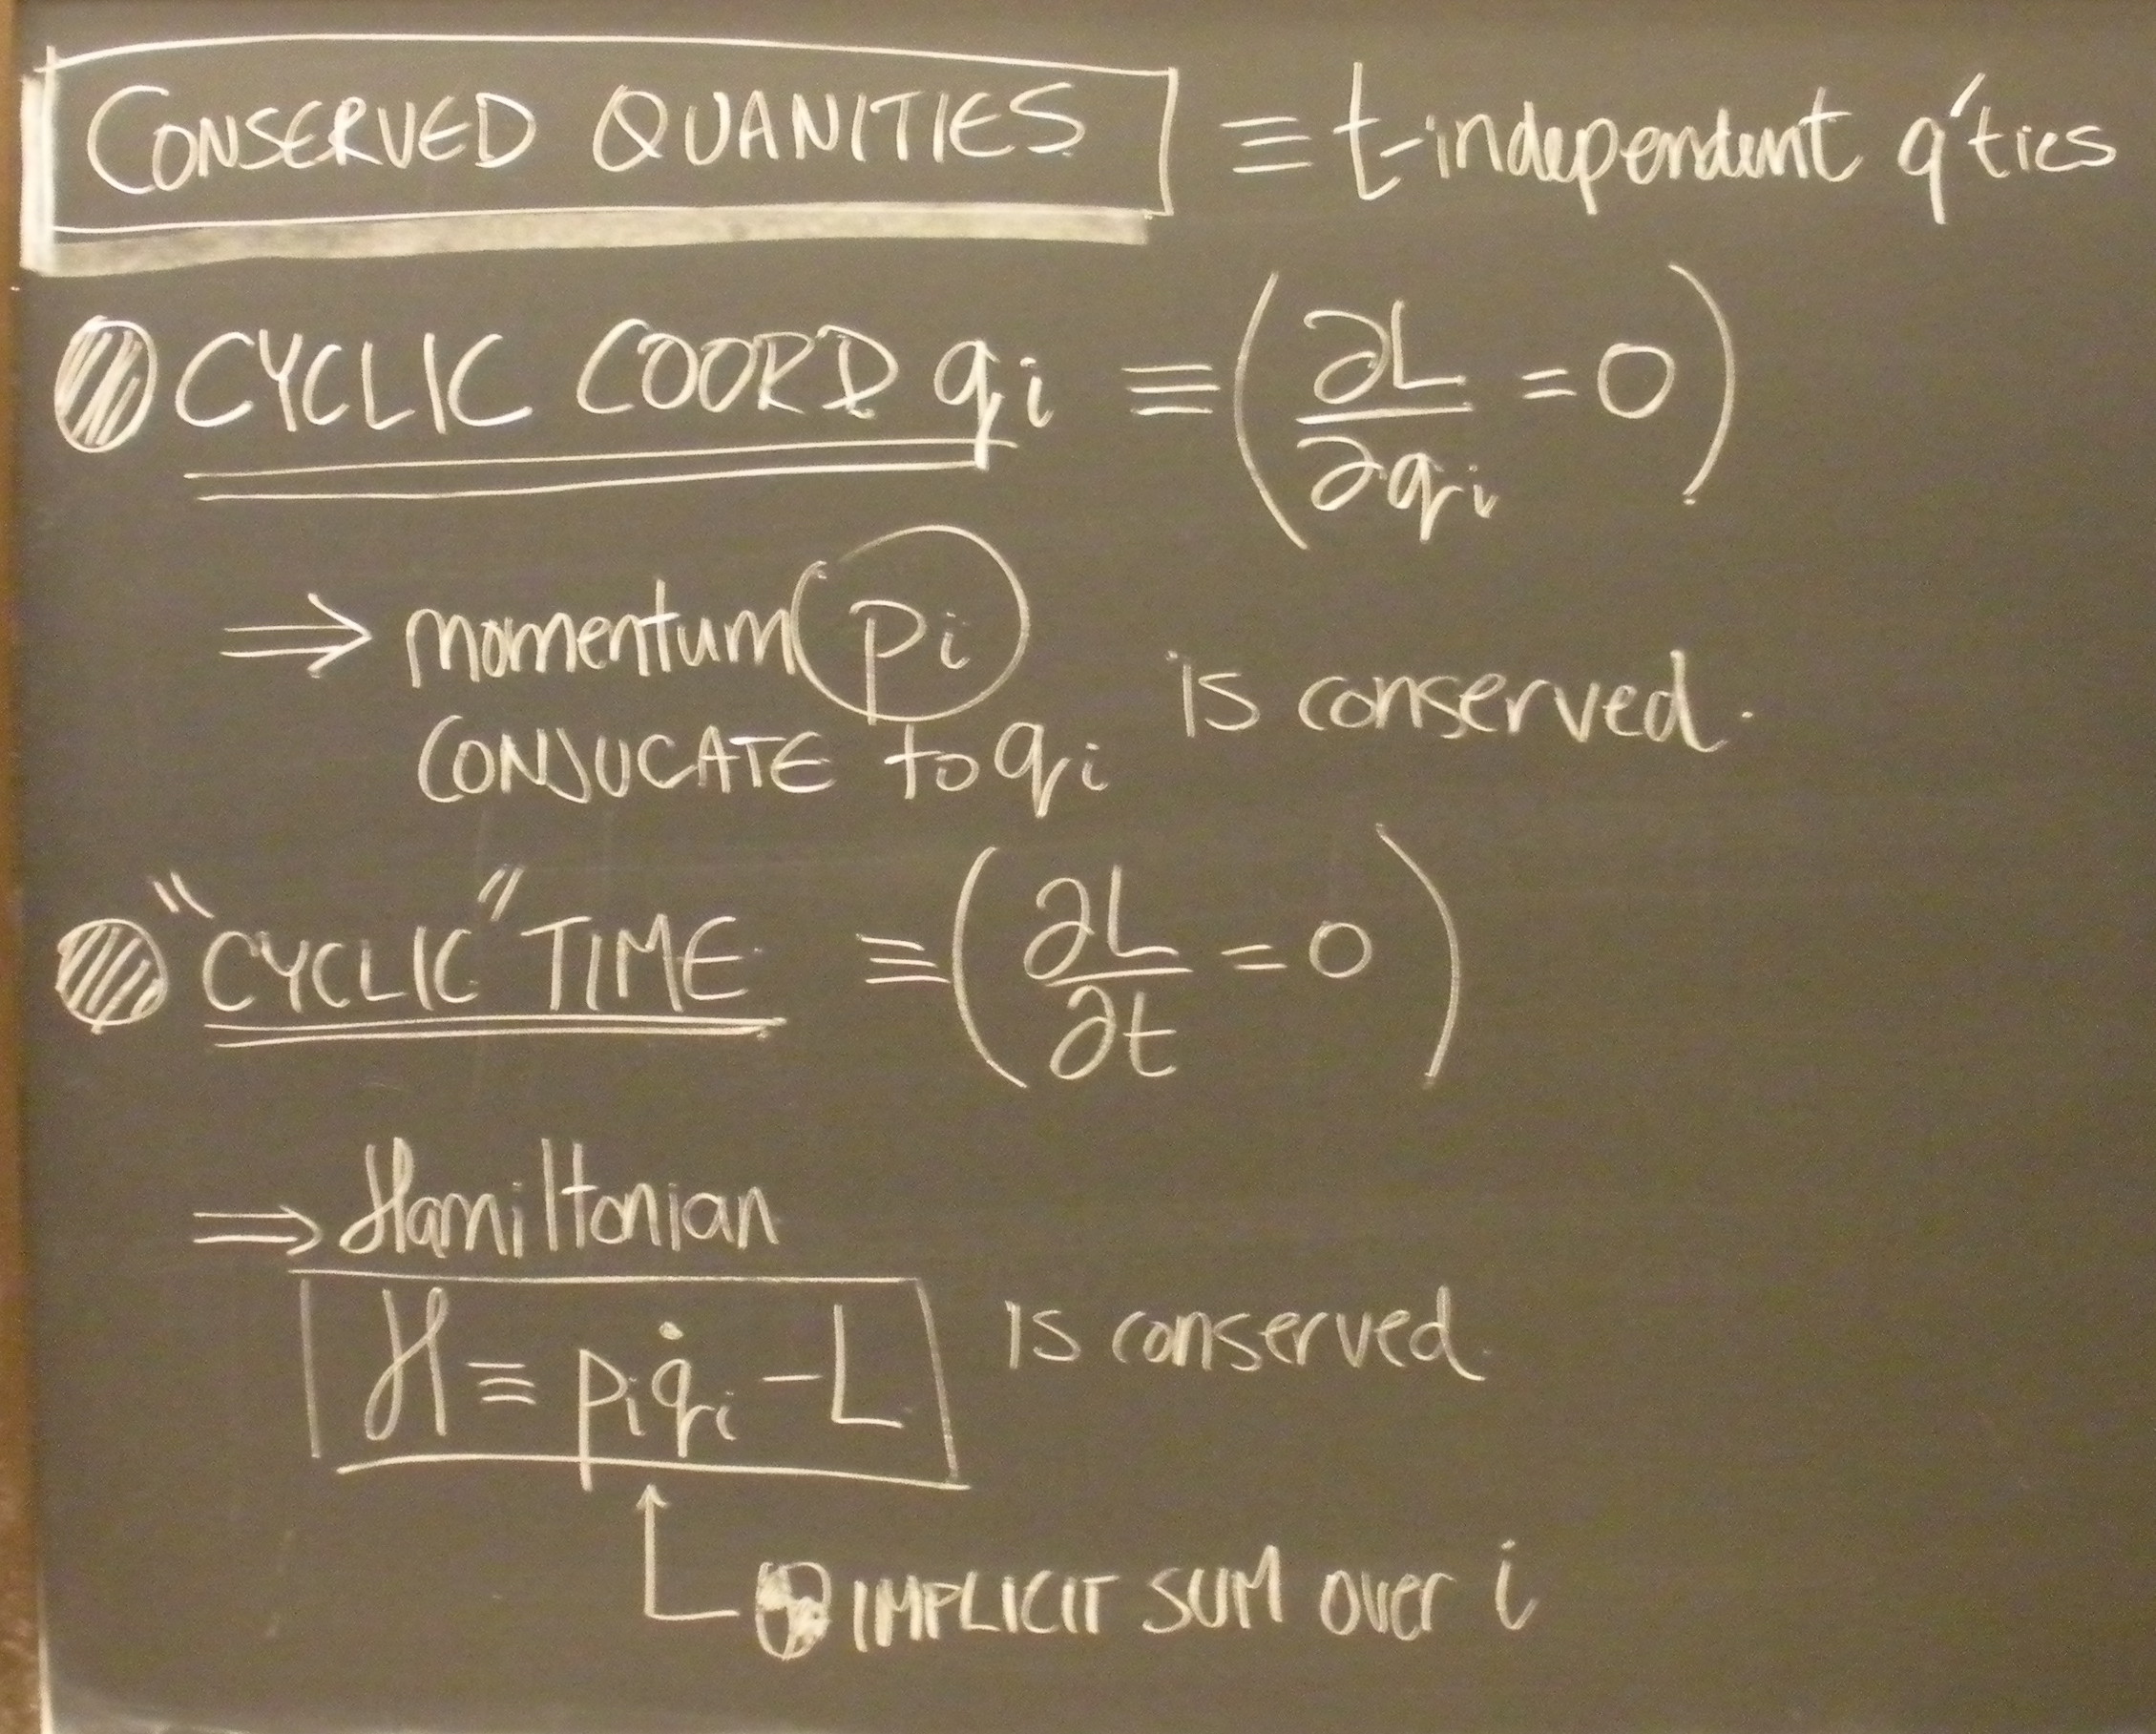 CONSERVED QUANITIES ≡ t-independent q'ties
CYCLIC COORD qi ≡ (∂L/∂qi = 0)
⇒ momentum pi
CONJUCATE to qi is conserved.
"CYCLIC" TIME ≡ (∂L/∂t = 0)
⇒ Hamiltonian
H ≡ piq̇i - L is conserved.
IMPLICIT SUM over i